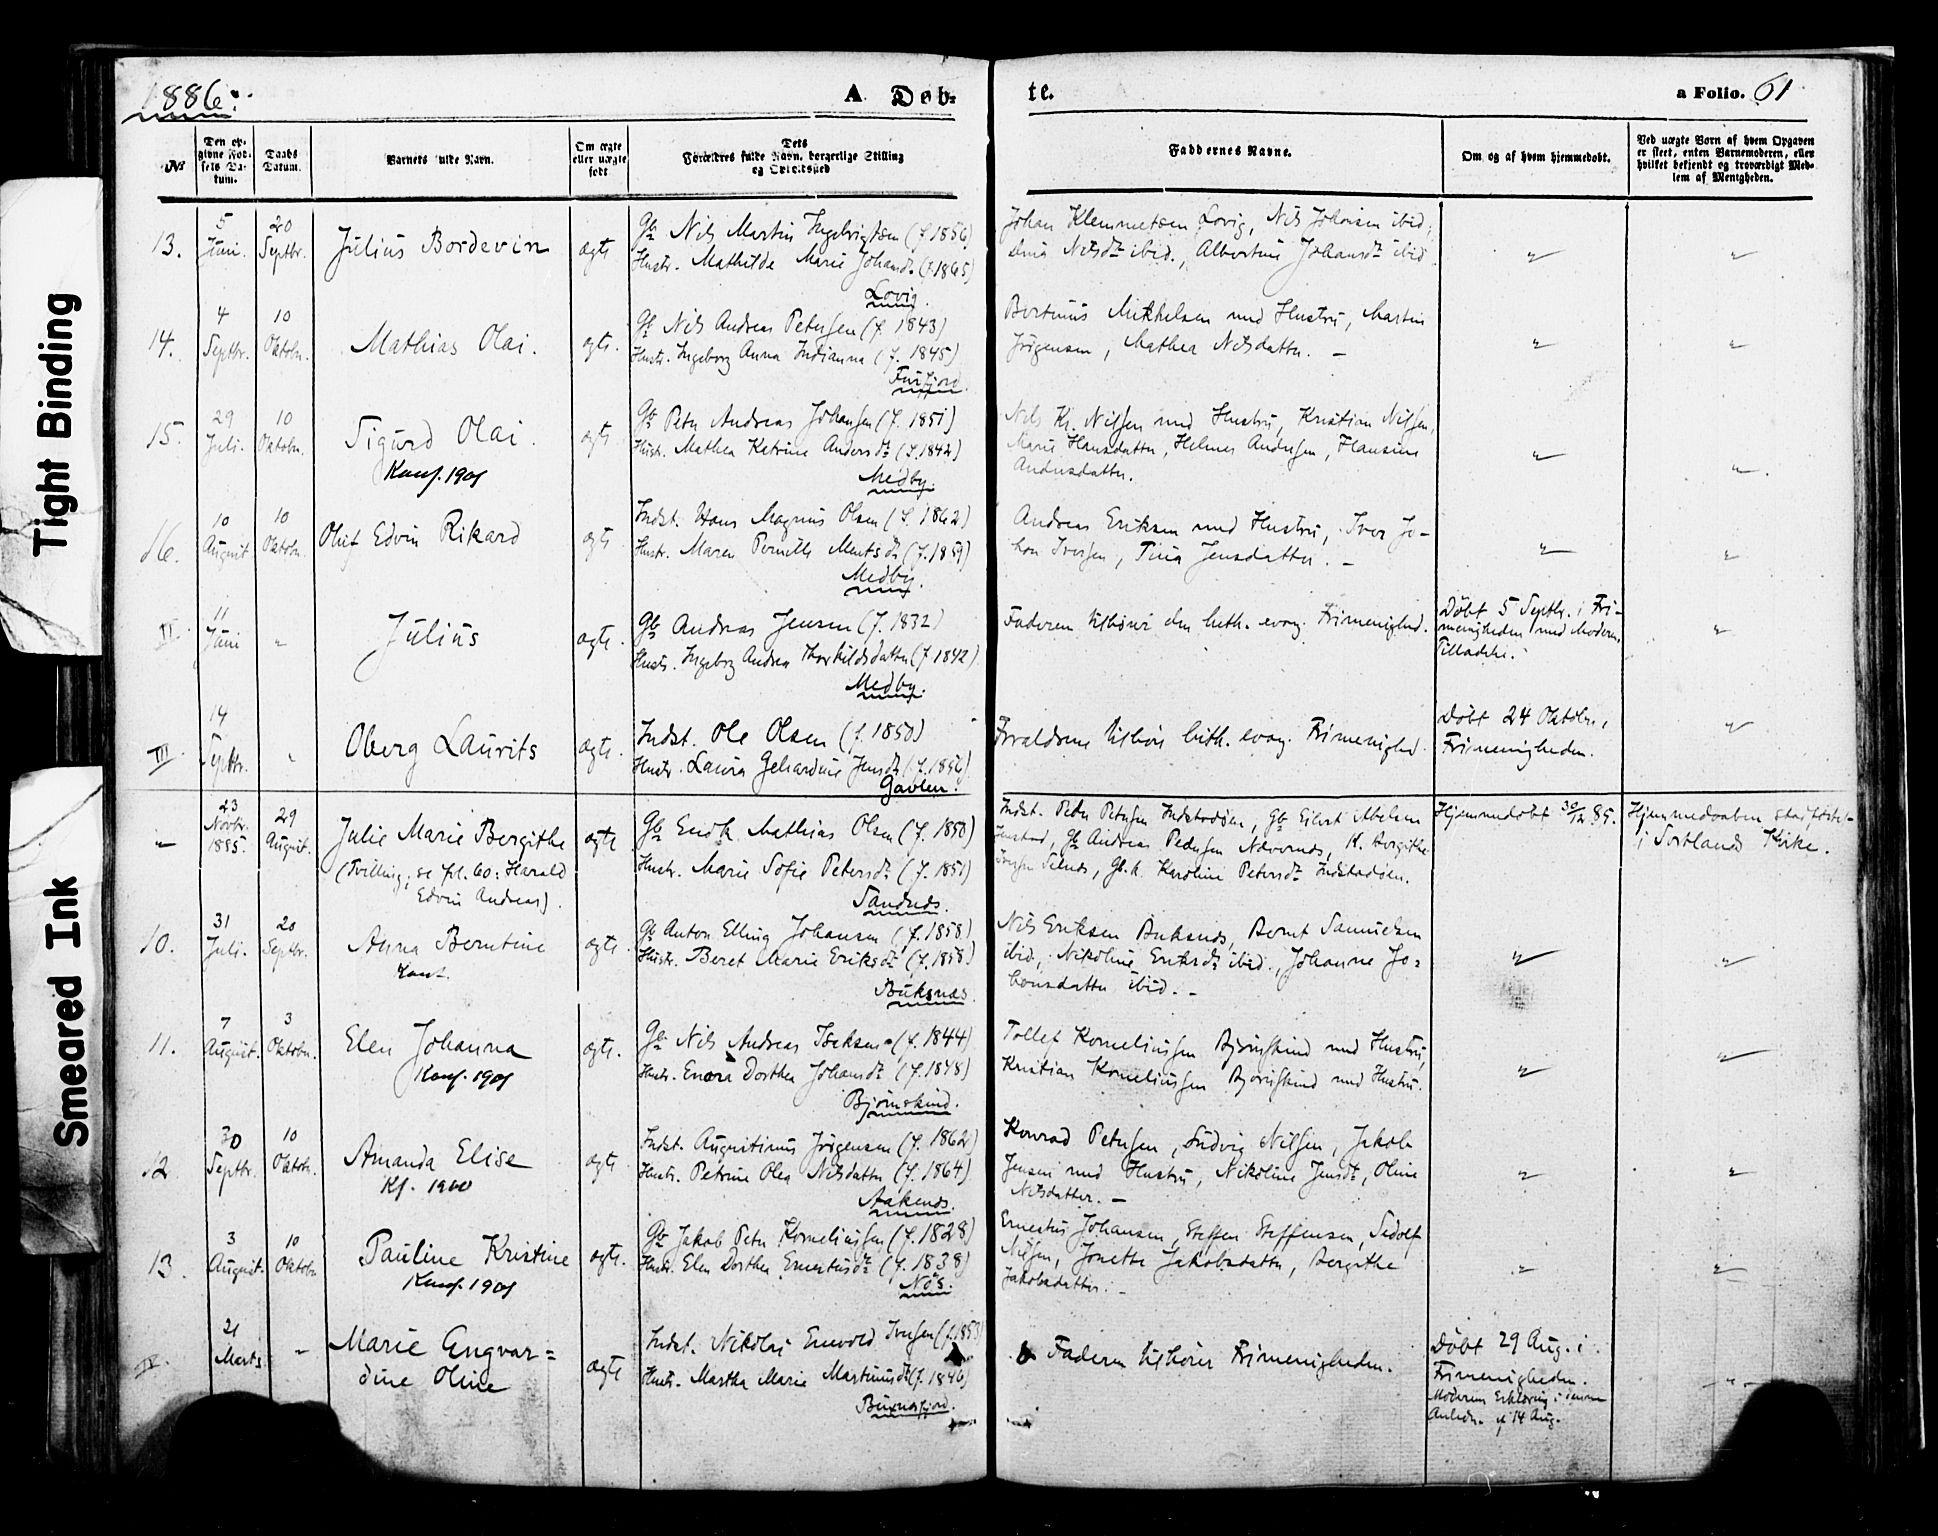 Tight Binding
Smeared Ink
1886.
A Døb-
te.
a Folio. 61
№
Den op-
givne Fød-
sels Da-
tum.
Daabs
Datum.
Barnets fulde Navn.
Om ægte
eller uægte
født
Dets
Forældres fulde Navn, borgerlige Stilling
og Opholdssted
Faddernes Navne.
Om og af hvem hjemmedøbt.
Ved uægte Børn af hvem Opgaven
er skeet, enten Barnemoderen, eller
hvilket bekjendt og troværdigt Med-
lem af Menigheden.
13.
5
Juni.
20
Septbr.
Julius Bordevin
ægte
Gb Nils Martin Ingebrigtsen (f. 1856)
Hustr. Mathilde Marie Johansdt (f. 1865)
Lovig.
Johan Klemmetsen Lovig, Nils Johansen ibid,
Nilsdt ibid., Albertine Johansdt ibid
"
"
14.
4
Septbr.
10
Oktobr.
Mathias Olai.
ægte.
Gb Nils Andreas Petersen (f. 1843)
Hustr. Ingeborg Anna Indianna (f. 1845)
Furfjord.
Bertinus Mikkelsen med Hustru, Martin
Jørgensen, Mathea Nilsdatter. —
"
"
15.
29
Juli.
10
Oktobr.
Sigurd Olai.
Konf. 1901
ægte
Gb Peter Andreas Johansen (f. 1851)
Hustr. Mathea Katrine Andersdt (f. 1842)
Medby.
Nils Kr. Nilsen med Hustru, Kristian Nilsen,
Marie Hansdatter, Helmer Andersen, Hansine
Andersdatter.
"
"
16.
10
August
10
Oktobr.
Oluf Edvin Rikard
ægte
Indst. Hans Magnus Olsen (f. 1862)
Hustr. Maren Pernille Mentsdt (f. 1859)
Medby.
Andreas Eriksen med Hustru, Iver Jo-
han Iversen, Tina Jensdatter. —
"
"
II
11
Juni
"
Julius
ægte.
Gb Andreas Jensen (f. 1832)
Hustr. Ingeborg Andrea Thorkildsdatter (f. 1842)
Medby.
Faderen tilhører den luth. evang. Frimenighed.
Døbt 5 Septbr. i Fri-
menigheden med Moderens
Tilladelse.
"
III
14
Septbr.
"
Oberg Laurits
ægte.
Indst. Ole Olsen (f. 1850)
Hustr. Laura Gehardine Jensdt (f. 1856)
Gavlen.
Forældrene tilhøre luth. evang. Frimenighed.
Døbt 24 Oktobr. i
Frimenigheden.
"
"
23
Novbr.
1885.
29
August.
Julie Marie Bergithe
(Tvilling, se fol. 60: Harald
Edvin Andreas).
ægte
Gb Mathias Olsen (f. 1850)
Hustr. Marie Sofie Petersdt (f. 1851)
Sandnes.
Indst. Peter Petersen Indstadøen, Gb Eilert Abelsen
Gb Andreas Pedersen K. Bergithe
Gb.k. Karoline Petersdt Indstadøen.
Hjemmedøbt 30/12 85.
Hjemmedaaben stadfæstet
i Sortlands Kirke.
10.
31
Juli.
20
Septbr.
Anna Berntine
Konf.
ægte
Gb Anton Elling Johansen (f. 1858)
Hustr. Beret Marie Eriksdt (f. 1858)
Buksnæs.
Nils Eriksen Buksnes, Bernt Samuelsen
ibid, Nikoline Eriksdt ibid., Johanne Jo-
hansdatter ibid. —
"
"
11.
7
August.
3
Oktobr.
Elen Johanna
Konf. 1901
ægte.
Gb Nils Andreas Isaksen (f. 1844)
Hustr. Dorthea Johansdt (f. 1848)
Bjørnskind.
Tollef Korneliussen Bjørnskind med Hustru,
Kristian Korneliussen Bjørnskind med Hustru.
"
"
12.
30
Septbr.
10
Oktobr.
Amanda Elise
Kf. 1900
ægte
Indst. Augustinus Jørgensen (f. 1862)
Hustr. Petrine Olea Nilsdatter (f. 1864)
Aakenes.
Konrad Petersen, Ludvig Nilsen, Jakob
Jensen med Hustru, Nikoline Jensdt, Oline
Nilsdatter. —
"
"
13.
3
August.
10
Oktobr.
Pauline Kristine
Konf. 1901
ægte.
Gb Jakob Peter Korneliussen (f. 1828)
Hustr. Elen Dorthea Ernestusdt (f. 1838)
Nøs.
Ernestus Johansen, Steffen Steffensen, Sedolf
Nilsen, Jonette Jakobsdatter, Bergithe
Jakobsdatter. —
"
"
IV.
21
Marts
"
Marie Engvar-
dine Oline
ægte
Indst. Nikolai Enevold Iversen (f. 1853)
Hustr. Martha Marie Martinusdt (f. 1846)
Buxnæsfjord.
Faderen tilhører Frimenigheden.
Døbt 29 Aug. i
Frimenigheden.
Moderens Erklæring i denne
Anledn. 14 Aug.
"